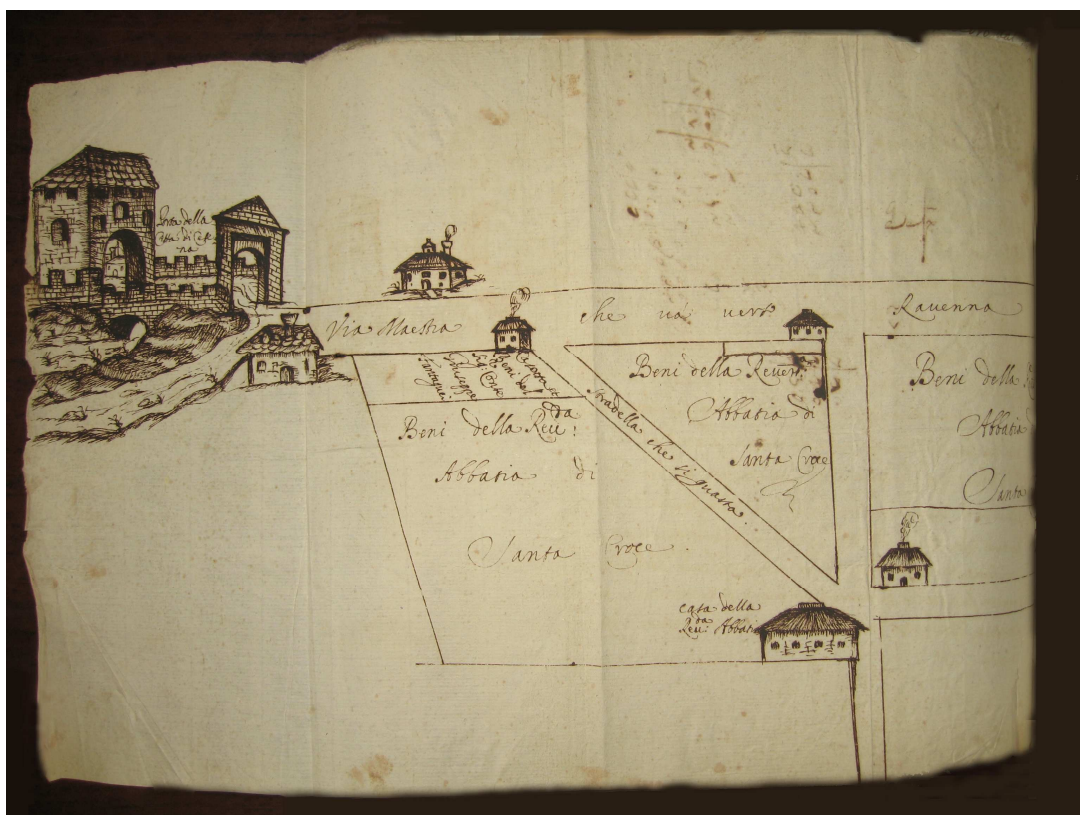 Porta della
Città di Cese
na
Via Maestra che uà uerso Ravenna
Beni del
Sig. Conte
Giuseppe
Fantaguzzi
Beni della Reu:da
Abbatia di
Santa Croce
Stradella che si guasta.
Beni della Reuer:
Abbatia di
Santa Croce
Beni della
Abbatia
Santa
casa della
Reu:da Abbatia